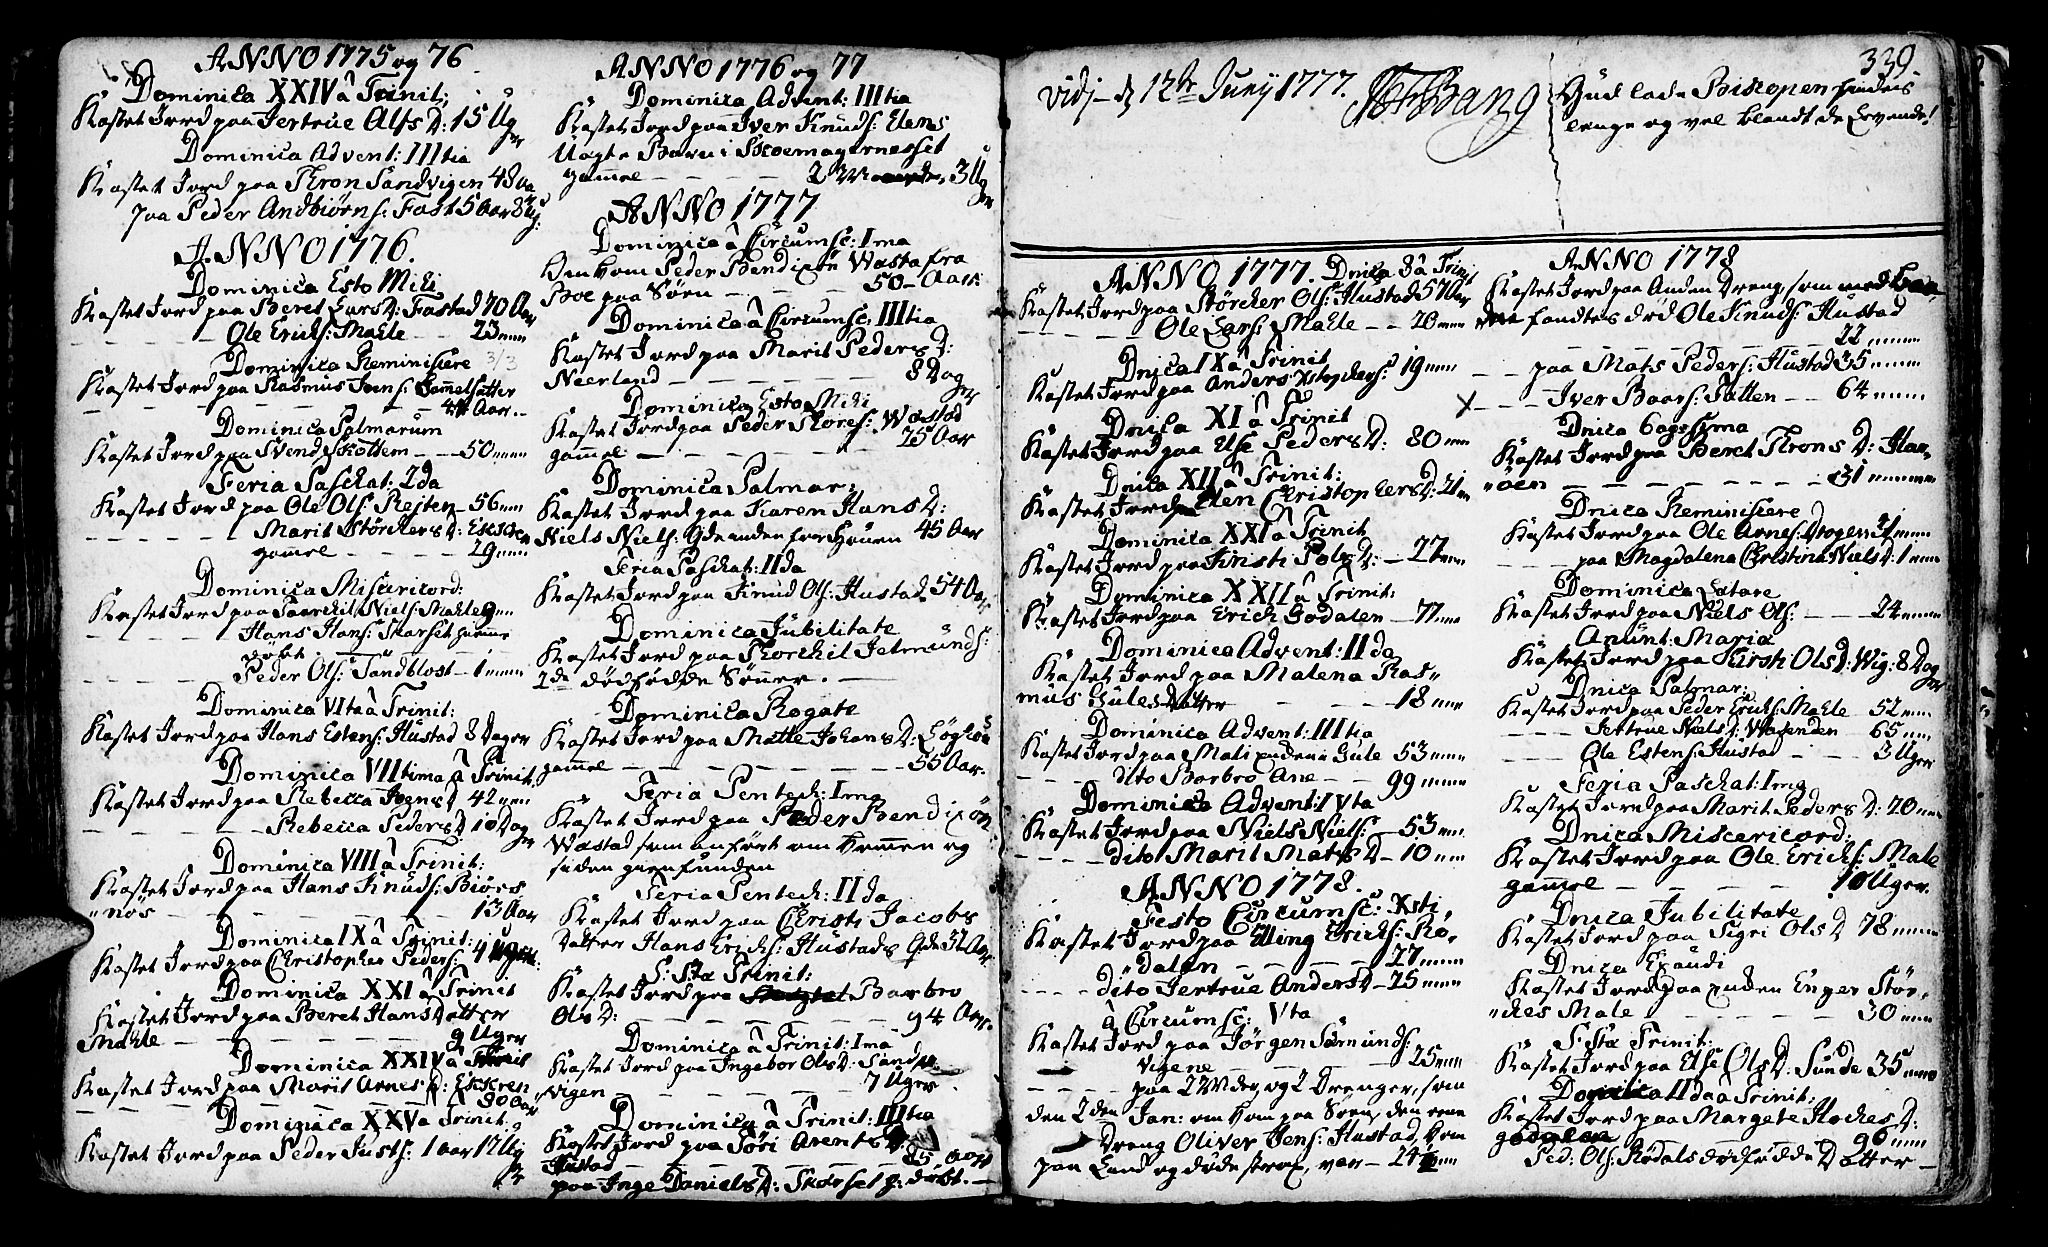 ANNO 1775 og 76
Dominica XXIV â Trinit:
Kastet Jord paa Jertrue Olfs D: 15 Ug
er
Dominica Advent: IIItia
Kastet Jord paa Thron Sandvigen 48 Aa
paa Peder Andbiörns: Fast 5 Aar 8 Ug:
ANNO 1776.
Dominica Esto Mihi
Kastet Jord paa Beret Lars D: Fastad 70 Aar
Ole Erichs: Mahle 23
Dominica Reminisiere 3/3
Kastet Jord paa Rasmus Jens: Gammelsætter
44 Aar
Dominica Palmarum
Kastet Jord paa Svend Skottem 50
Feria Paschat: 2da
Kastet Jord paa Ole Ols: Reiten 56
Marit Störchers D: Eskren
gammel 29
Dominica Misericord:
Kastet Jord paa Niels: Mahle 9
Hans Hans: Skarset hiemme
döbt
Peder Ols: Sandblost 1
Dominica VIta â Trinit:
Kastet Jord paa Hans Estens: Hustad 8 Dager
Dominica VIItima â Trinit:
Kastet Jord paa Rebecca Jvens D 42
Rebecca Peders D 10 Dag
er
Dominica VIII â Trinit:
Kastet Jord paa Hans Knuds: Biörs
nös 13 Aar
Dominica IX â Trinit:
Kastet Jord paa Christopher Peders: 4 Uger
Dominica XXI â Trinit
Kastet Jord paa Beret Hans Datter
Mahle 9 Uger
Dominica XXIV â Trinit
Kastet Jord paa Marit Arnes D: Eskren
90 Aar
Dominica XXV â Trinit:
Kastet Jord paa Peder Justs: 1 aar 17 Ug
er
ANNO 1776 og 77
Dominica Advent: IIItia
Kastet Jord paa Iver Knuds: Elens
Uægte Barn i Skoemagernesset
gammel 3 Ug
er
ANNO 1777
Dominica â Circumsc: Ima
Omkom Peder Bendixön Wæstad fra
Boe paa Söen 50 Aar
Dominica â Circumsc: IIItia
Kastet Jord paa Marit Peders D:
Neerland 8 Dag
er
Dominica Esto Mihi
Kastet Jord paa Peder Tores: Wæstad
gammel 75 Aar
Dominica Palmar:
Kastet Jord paa Karen Hans D:
Niels Niels: Qde uden for Houen 45 Aar
Feria Paschat: IIda
Kastet Jord paa Knud Ols: Hustad 54 Aar
Dominica Jubilitate
Kastet Jord paa Thorchil Jetmunds:
2de dödfödde Sönner.
Dominica Rogate
Kastet Jord paa Mætte Johans D:
gammel 55 Aar.
Feria Pentech: Ima
Kastet Jord paa Peder Bendixön
Wæstad som anfört omkommen og
siden gienfunden
Feria Pentech: IIda
Kastet Jord paa Christi Jacobs
Datter Hans Erichs: Hustads Qde 32 Aar
S: Stæ Trinit:
Kastet Jord paa Barbro
Ols D: 94 Aar.
Dominica â Trinit: Ima
Kastet Jord paa Ingebor Ols D: Sand
vigen 7 Uger
Dominica â Trinit: IIItia
Kastet Jord paa Siri Arents D:
Hustad 85 Aar
paa Inge Daniels D: Skarset h: döbt.
339
Vidj d 12te Junij 1777. Bang
Gud lade Biskopen hendes
lenge og vel blandt de Levende!
ANNO 1777. Dnica 8 â Trinit
Kastet Jord paa Störcher Ols: Hustad 57 Aar
Ole Lars: Mahle 20
Dnica IX â Trinit
Kastet Jord paa Anders Xstophers: 19
Dnica XI â Trinit
Kastet Jord paa Else Peders D: 80
Dnica XII â Trinit:
Kastet Jord p Elen Christophers D: 21
Dominica XXI â Trinit
Kastet Jord paa Kirsti Pols D: 27
Dominica XXII â Trinit:
Kastet Jord paa Erich Godalen 77
Dominica Advent: IIda
Kastet Jord paa Malena Ras
mus Gules Datter 18
Dominica Advent: IIItia
Kastet Jord paa Mali Gule 53
Dito Barbro Ane 99
Dominica Advent: IVta
Kastet Jord paa Niels Niels: 53
dito Marit Mats D 10
ANNO 1778.
Festo Circumsc: Xsti
Kastet Jord paa Elling Erichs: Rö
dalen 27
dito Jertrue Anders D 25
â Circumsc: Vta
Kastet Jord paa Jörgen Sæmunds:
Vigene 25
paa 2 Mder, og 2 Drenger, som
den 2den Jan: omkom paa Söen, den eene
Dreng Oliver Jens: Hustad, kom
paa Land og döde strax, var 24
ANNO 1778
Kastet Jord paa Anden Dreng, som
fandtes död Ole Knuds: Hustad
22
paa Mats Peders: Hustad 35
X Iver Baars: Tatten 64
Dnica 6agesima
Kastet Jord paa Beret Throns D: Har
öen 31
Dnica Reminisiere
Kastet Jord paa Ole Arnes:
paa Magdalena Christina Niels D: 1
Dominica Lætare
Kastet Jord paa Niels Ols: 24
Anunt: Maria
Kastet Jord paa Kirsti Ols D: Wig: 8 Dag
er
Dnica Palmar:
Kastet Jord paa Peder Erichs: Mahle 52
Jertrue Niels D: Wasenden 65
Ole Estens: Hustad 3 Uger
Feria Paschat: Ima
Kastet Jord paa Marit Peders D: 20
Dnica Misericord:
Kastet Jord paa Ole Erichs: Male
gammel 10 Uger.
Dnica Jubilitate
Kastet Jord paa Sigri Ols D 78
Dnica Exaudi
Kastet Jord paa Enger Stör
chs Male 30
S Stæ Trinit:
Kastet Jord paa Else Ols D: Sunde 35
Dominica IIda â Trinit:
Kastet Jord paa Margete Hoches D:
godalen 96
Ped: Ols: Rödals dödfödde Datter